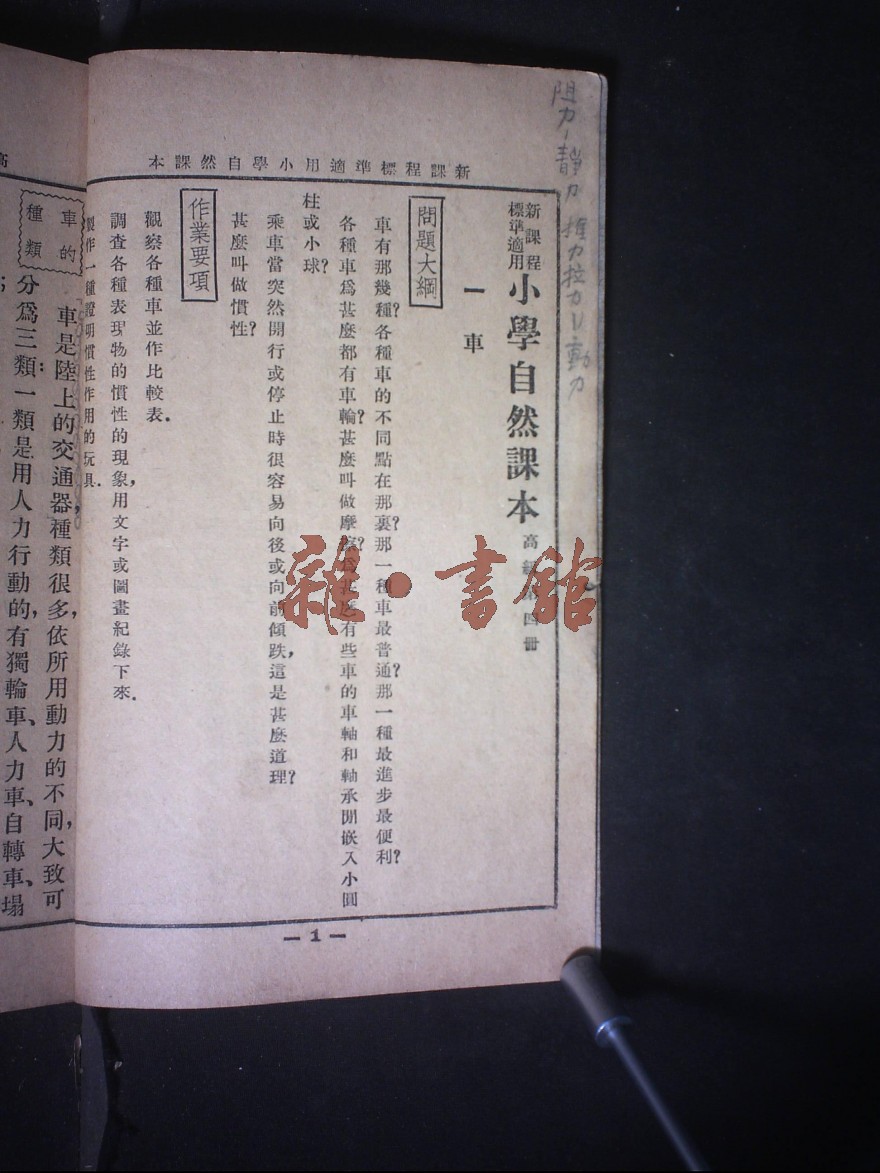 新課程標準適用小學自然課本
新課程
標準適用
小學自然課本
高級第四册
一 車
問題大綱
車有那幾種?各種車的不同點在那裏?那一種車最普通?那一種最進步最便利?
各種車爲甚麼都有車輪?甚麼叫做摩擦?爲甚麼有些車的車軸和軸承間嵌入小圓
柱或小球?
乘車當突然開行或停止時很容易向後或向前傾跌,這是甚麼道理?
甚麼叫做慣性?
作業要項
觀察各種車並作比較表.
調查各種表現物的慣性的現象,用文字或圖畫紀錄下來.
製作一種證明慣性作用的玩具.
—1—
車的
種類
車是陸上的交通器,種類很多,依所用動力的不同,大致可
分爲三類:一類是用人力行動的,有獨輪車、人力車、自轉車、塌
阻力 靜力 推力拉力 動力
雜·書館